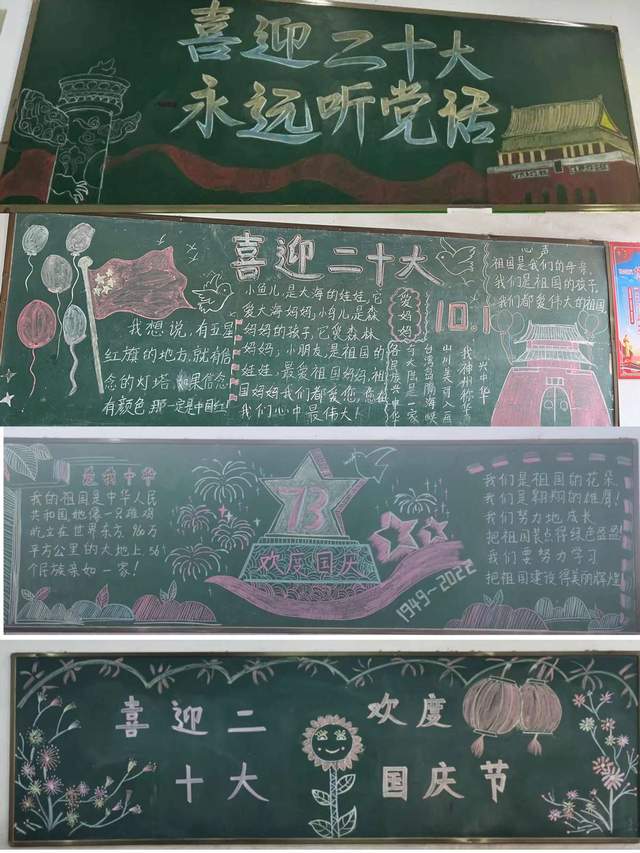 喜迎二十大
永远听党话
喜迎二十大
我想说,有五星
红旗的地方,就有信
念的灯塔,如果信念
有颜色,那一定是中国红!
小鱼儿,是大海的娃娃,它
爱大海妈妈,小鸟儿,是森
妈妈的孩子,它爱森林
妈妈,小朋友,是祖国的
娃娃,最爱祖国妈妈,祖
国妈妈我们都爱您,您在
我们心中最伟大!
爱妈妈
10.1
兴中华
我神州称华
山川美可入画
台湾岛隔海峡
今大陆是一家
各民族
心声
祖国是我们的母亲,
我们是祖国的孩子,
我们都爱伟大的祖国
爱我中华
我的祖国是中华人民
共和国,她像一只雄鸡
屹立在世界东方,960万
平方公里的大地上,56
个民族亲如一家!
73
欢度国庆
1949-2022
我们是祖国的花朵
我们是翱翔的雄鹰!
我们努力地成长
把祖国装点得绿色盎盎!
我们要努力学习
把祖国建设得美丽辉煌
喜迎二
十大
欢度
国庆节